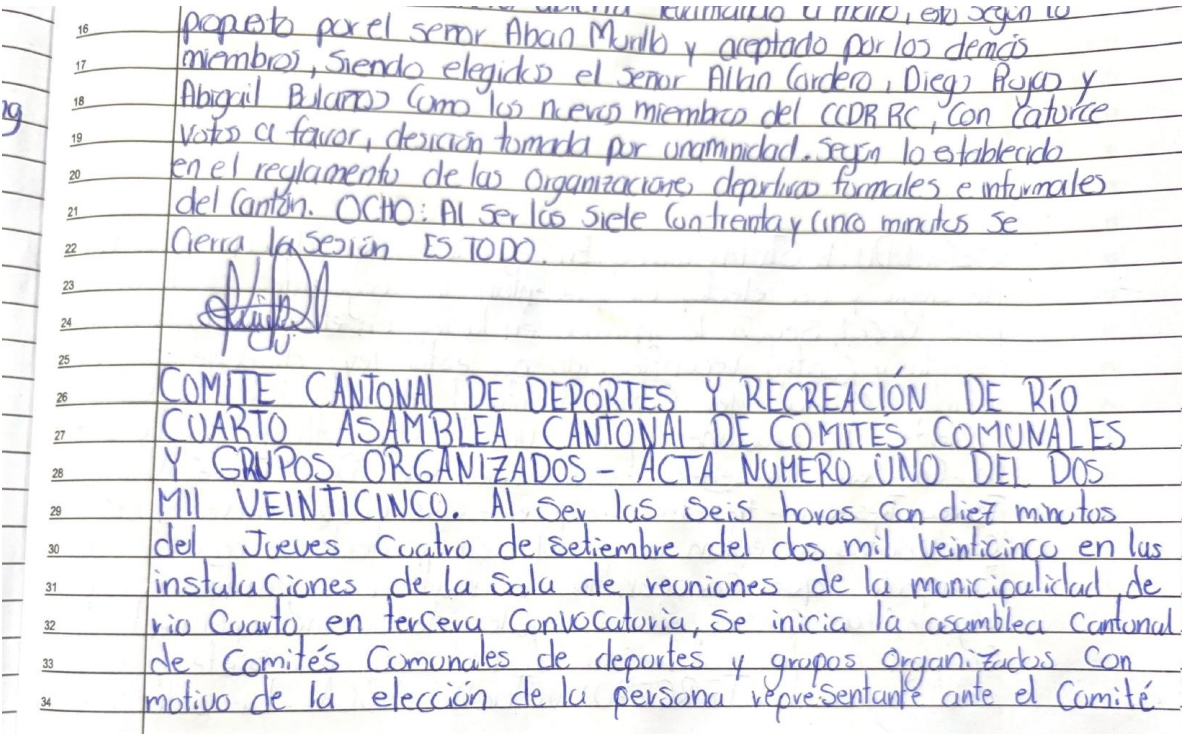 levantando la mano, esto según lo
16 propuesto por el señor Aban Murillo y aceptado por los demás
17 miembros, siendo elegidos el señor Allan Cordero, Diego Rojas y
18 Abigail Bolaños como los nuevos miembros del CCDRRC, con catorce
19 votos a favor, desición tomada por unaminidad. Según lo establecido
20 en el reglamento de las organizaciones deportivas formales e informales
21 del Cantón. OCHO: Al ser las siete con treinta y cinco minutos se
22 cierra la sesión ES TODO.
23
24
25
26 COMITE CANTONAL DE DEPORTES Y RECREACIÓN DE RÍO
27 CUARTO ASAMBLEA CANTONAL DE COMITES COMUNALES
28 Y GRUPOS ORGANIZADOS - ACTA NUMERO UNO DEL DOS
29 MIL VEINTICINCO. Al ser las seis horas con diez minutos
30 del Jueves Cuatro de setiembre del dos mil veinticinco en las
31 instalaciones de la sala de reuniones de la municipalidad de
32 rio Cuarto, en tercera Convocatoria, Se inicia la asamblea Cantonal
33 de Comités Comunales de deportes y grupos Organizados Con
34 motivo de la elección de la persona representante ante el Comité